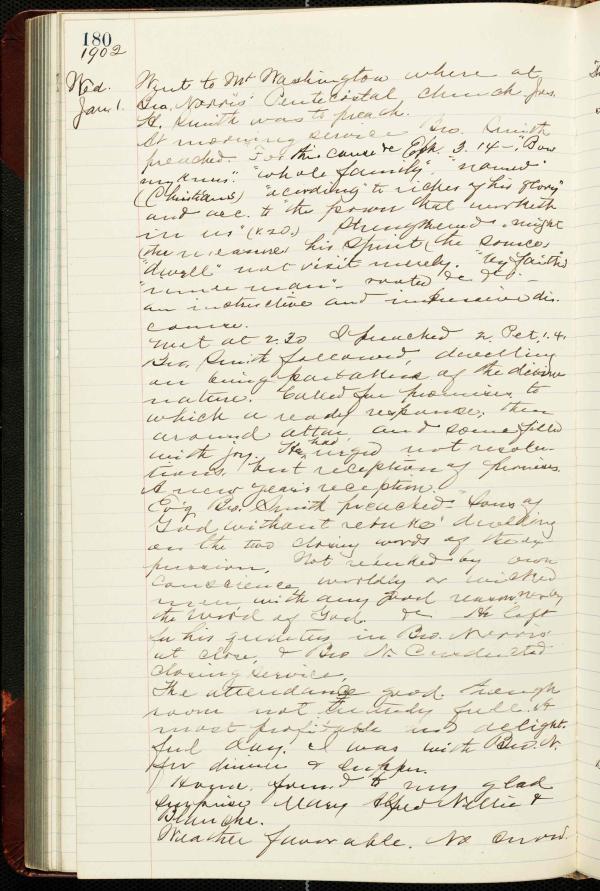 180
1902
Wed. Went to Mt Washington where at
Jan. 1. Bro. Norris' Pentecostal church Jos.
H. Smith was to preach.
At morning service Bro. Smith
preached. For this cause &c Eph. 3.14 - "Bow
my knees." "whole family". "named"
(Christians) "according to riches of his glory"
and acc. to "the power that worketh
in us" (v.20.) Strengthened - might
(the measure) his Spirit (the source)
"dwell" not visit merely. "by faith"
"inner man" - rooted &c &c -
an instructive and impressive dis-
course.
Met at 2.30 I preached 2. Pet. 1.4.
Bro. Smith followed, dwelling
on being partakers of the divine
nature. Called for promises to
which a ready response; then
around altar and some filled
with joy. He had urged not resolu-
tions, but reception of promises.
A new year's reception.
Ev'g Bro. Smith preached - "Sons of
God without rebuke" dwelling
on the two closing words of the ex-
pression, Not rebuked by own
conscience, worldly or wicked
men with any good reason nor by
the word of God. &c He left
for his quarters in Bro. Norris'
at close, & Bro N. Conducted
closing service.
The attendance good though
room not entirely full. A
most profitable and delight-
ful day. I was with Bro. N.
for dinner & supper.
Home, found to my glad
surprise Mary Alfred Nellie &
Blanche.
Weather favorable. No snow.